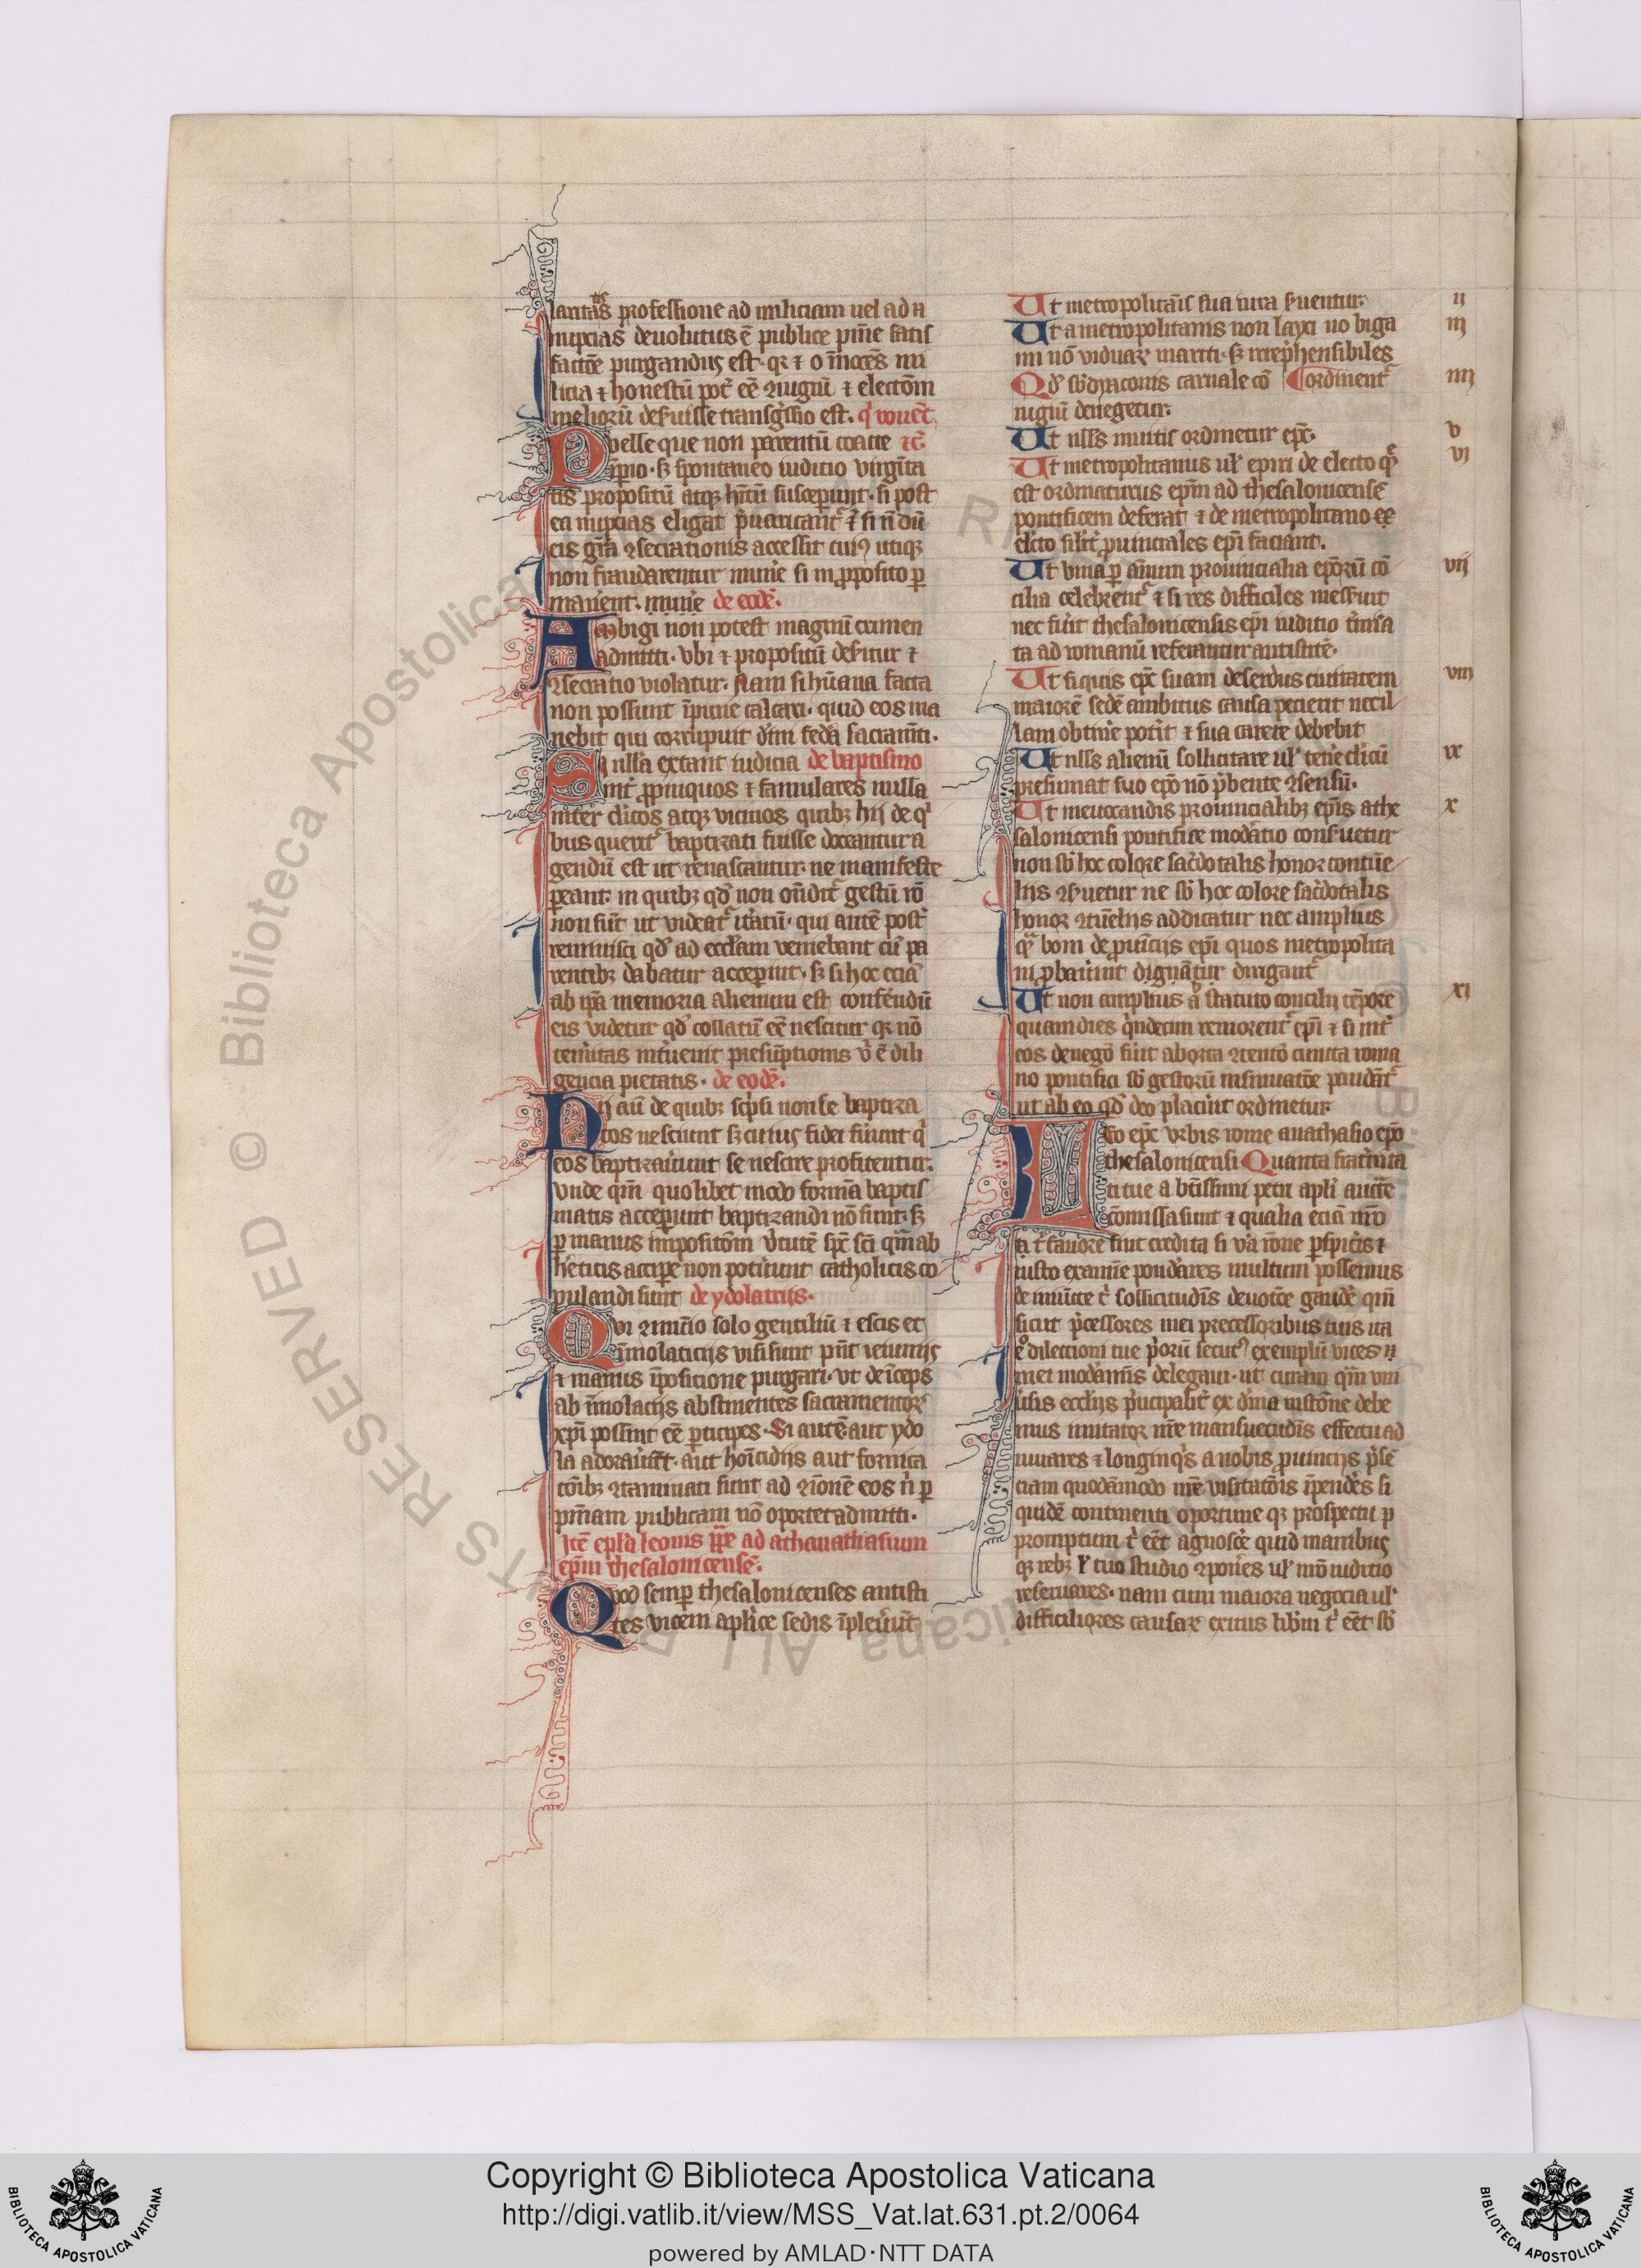 lantatis professione ad miliciam uel ad n
nupcias deuolutus ē publice pn̄ie satis
factōe purgandus est. qr ⁊ o īnocēs mi
licia ⁊ honestū pot̄ eē ꝯiugiū ⁊ electōm
meliorū deseruisse transgressio est. q̄ uouēt
Puelle que non parentū coacte ⁊c̄
īpio. sꝫ spontaneo iudicio virgīta
tis propositū atqꝫ hītū susceperunt. si post
ea nupcias eligāt p̄uaricant̄ ⁊ si n̄ dū
eis gr̄a ꝯsecrationis accessit cuiꝯ utiqꝫ
non fraudarentur mune si in ꝓposito ꝑ
manent. munē de eodē.
Ambigi non potest magnū crimen
admitti. vbi ⁊ propositū desitur ⁊
ꝯsecratio violatur. Nam si hūana facta
non possunt īpune calcari. quid eos ma
nebit qui corrupūit diuini federa sacramīti.
Si nulla extant iudicia de baptismo
int̄ ꝓpinquos ⁊ famulares nulla
inter clicos atqꝫ vicinos quibꝫ hij de qͥ
bus querit̄ baptizati fuisse doceantur a
gendū est ut renascantur. ne manifeste
pereant. in quibꝫ qd̄ non ondit̄ gestū rō
non sūt ut videat̄ iteratū. qui autē post̄
reminisci qd̄ ad ecclam veniebant cū pa
rentibꝫ dabatur acceperint. sꝫ si hoc eciā
ab ipa memoria alienum est conferendū
eis videtur qd̄ collatū eē nescitur qr nō
temitas int̄uenit presūptionis ū ē dili
gencia pietatis. de eodē.
Hij aū de quibꝫ scpsi non se baptiza
tos nesciunt sꝫ cuius fidei fuerint qͥ
eos baptizauerunt se nescire profitentur.
vnde qm̄ quolibet modo forma baptis
matis acceperunt baptizandi nō sunt. sꝫ
ꝑ manus impositōm v̄tutē spc̄ sc̄i qm̄ ab
hereticis accipere non potuerunt catholicis co
pulandi sunt de ydolatriis.
Qui ꝯuiuio solo gentiliū ⁊ escis et
īmolaticiis visi sunt pn̄t ieiuniis
⁊ manus īpositione purgari. vt deīceps
ab īmolatiis abstinentes sacramentoꝝ
xp̄i possint eē ꝑticipes. Si autē aut ydo
la adorauert̄. aut hoīcidiis aut fornica
cōibꝫ ꝯtaminati sunt ad ꝯionē eos n̄ ꝑ
pn̄iam publicam nō oportet admitti.
Itē epl̄a leonis ꝑꝑe ad athanathasium
epm̄ thesalonicensē.
Quod semꝑ thesalonicenses antisti
tes vicem aplice sedis īpleuert̄
Ut metropolitāis sua iura seruentur. ii
Ut a metropolitanis non layci no biga iii
mi nō viduaꝝ mariti. sꝫ irrephensibiles
Qd̄ sb̄dyaconis carnale cō ordinent̄ iiii
nigiū denegetur.
Ut nllꝰ inuitis ordinetur epc̄. v
Ut metropolitanus ul̄ epi de electo qͥ vi
est ordinaturus epm̄ ad thesalonicensē
pontificem deferat ⁊ de metropolitano ex
elcto silit̄ ꝓuinciales epi faciant.
Ut bina ꝑ annum prouincialia eporū cō vii
cilia celebrent̄ ⁊ si res difficiles inessent
nec fuerit thesalonicensis epi iuditio t̄mina
ta ad romanū referantur antistitē.
Ut siquis epc̄ suam deserens ciuitatem viii
maiorē sedē ambitus causa pecierit nec il
lam obtinere poterit ⁊ sua carere debebit
Ut nllꝰ alienū sollicitare ul̄ tenere clicū ix
presumat suo epo nō p̄bente ꝯsensū.
Ut in euocandis prouincialibꝫ epis athe x
salonicensi pontifice moderatio conseruetur
non sb̄ hoc colore sacerdotalis honor contūe
liis ꝯseruetur ne sb̄ hoc colore sacerdotalis
honor ꝯtūeliis addicatur nec amplius
qͣ boni de ꝓuinciis epi quos metropolita
ni ꝓbauerunt dignāter dirigant̄
Ut non amplius a statuto concilii tēpore xi
quam dies qͥndecim remorent̄ epi ⁊ si int̄
eos de nego fuerit aborta ꝯtentō cuncta roma
no pontifici sb̄ gestorū insinuatōe pandāt̄
ut ab eo qd̄ deo placuerit ordinetur
Leo epc̄ vrbis rome anathasio epo
thesalonicensi Quanta fraternita
ti tue a btissimi petri apli auctē
cōmissa sunt ⁊ qualia eciā nr̄o
ti t̄ fauore sint credita si va rōne ꝑspiceres ⁊
iusto examine ponderares multum possemus
de iniūcte t̄ sollicitudīs deuotōe gaudē qm̄
sicut p̄cessores mei precessoribus tuis ita
eͦ dilectioni tue priorū secutꝰ exemplū vices n
mei moderamīs delegaui. ut curam qm̄ vni
ūsis eccliis p̄ncipalit̄ ex diuina instōne debe
mus imitator nr̄e mansuetudīs effectu ad
iuuares ⁊ longinqͥs a nobis ꝓuinciis p̄sē
ciam quodāmodo nr̄e visitatōis īpenderes si
quidē continenti oportune qꝫ prospectu ꝑ
promptum t̄ eēt agnosce quid in aribus
qꝫ rebꝫ ul̄ tuo studio ꝯponeres ul̄ nr̄o iuditio
reseruares. nam cum maiora negocia ul̄
difficiliores causaꝝ exitus librūm t̄ eēt sb̄
Copyright © Biblioteca Apostolica Vaticana
http://digi.vatlib.it/view/MSS_Vat.lat.631.pt.2/0064
powered by AMLAD·NTT DATA
BIBLIOTECA APOSTOLICA VATICANA
BIBLIOTECA APOSTOLICA VATICANA